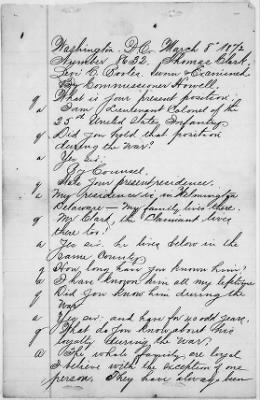 Washington D.C. March 8th 1872
Number 8632. Thomas Clark.
Levi C. Bootes. Sworn & Examined
By Commissioner Howell.
q What is your present position.
a I am Lieutenant Colonel of the
25th United States Infantry.
q Did you hold that position
during the war?
a Yes sir.
By Counsel.
q State your present residence.
a My residence is in Wilmington
Delaware — My family lives there.
q Mr Clark, the Claimant lives
there too?
a Yes sir. he lives below in the
same County.
q How long have you known him?
a I have known him all my lifetime
q Did you know him during the
war
a Yes sir; and have for years.
q What do you know about his
loyalty during the war.
a The whole family are loyal
I believe with the exception of one
person. They have always been